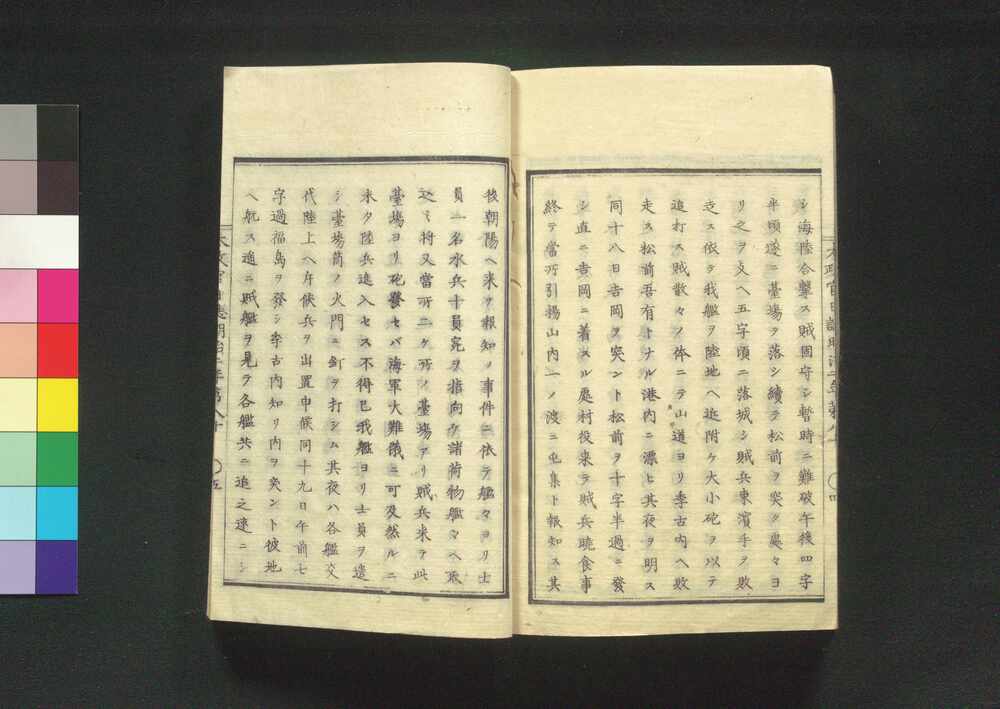 シ海陸合擊ス賊固守シ暫時ニ難破午後四字
半頃遂ニ臺場ヲ落シ續テ松前ヲ突ク裏々ヨ
リ之ヲ支ヘ五字頃ニ落城シ賊兵東濱手ヲ敗
走ス依テ我艦ヲ陸地ヘ近附ケ大小砲ヲ以テ
追打ス賊散々ノ体ニテ山道ヨリ李古内ヘ敗
走ス松前吾有トナル港内ニ漂ヒ其夜ヲ明ス
同十八日吉岡ヲ突ント松前ヲ十字半過ニ發
シ直ニ吉岡ニ着スル處村役来ラ賊兵曉食事
終テ當所引揚山内一ノ渡ニ屯集ト報知ス其
太政官日誌明治二年第八十
○四
後朝陽ヘ来ヲ報知ノ事件ニ依テ艦々ヨリ士
員一名水兵十員宛ヲ指向ケ諸荷物艦々ヘ取
込ミ將又當所二ケ所ノ臺場アリ賊兵来テ此
臺場ヨリ砲發セバ海軍大難儀ニ可及然ルニ
未タ陸兵進入セス不得已我艦ヨリ士員ヲ遣
シ臺場筒ノ火門ニ釘ヲ打シム其夜ハ各艦交
代陸上ヘ斥候兵ヲ出置申候同十九日午前七
字過福島ヲ發シ李古内知リ内ヲ突ント彼地
ヘ航ス遙ニ賊艦ヲ見テ各艦共ニ追之速ニシ
太政官日誌明治二年第八十
○五